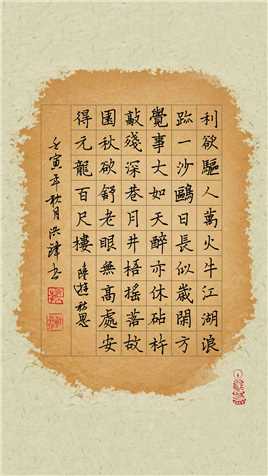 利欲驅人萬火牛江湖浪
跡一沙鷗日長似歲閑方
覺事大如天醉亦休砧杵
敲殘深巷月井梧搖落故
園秋欲舒老眼無高處安
得元龍百尺樓 陸游秋思
壬寅年秋月洪書